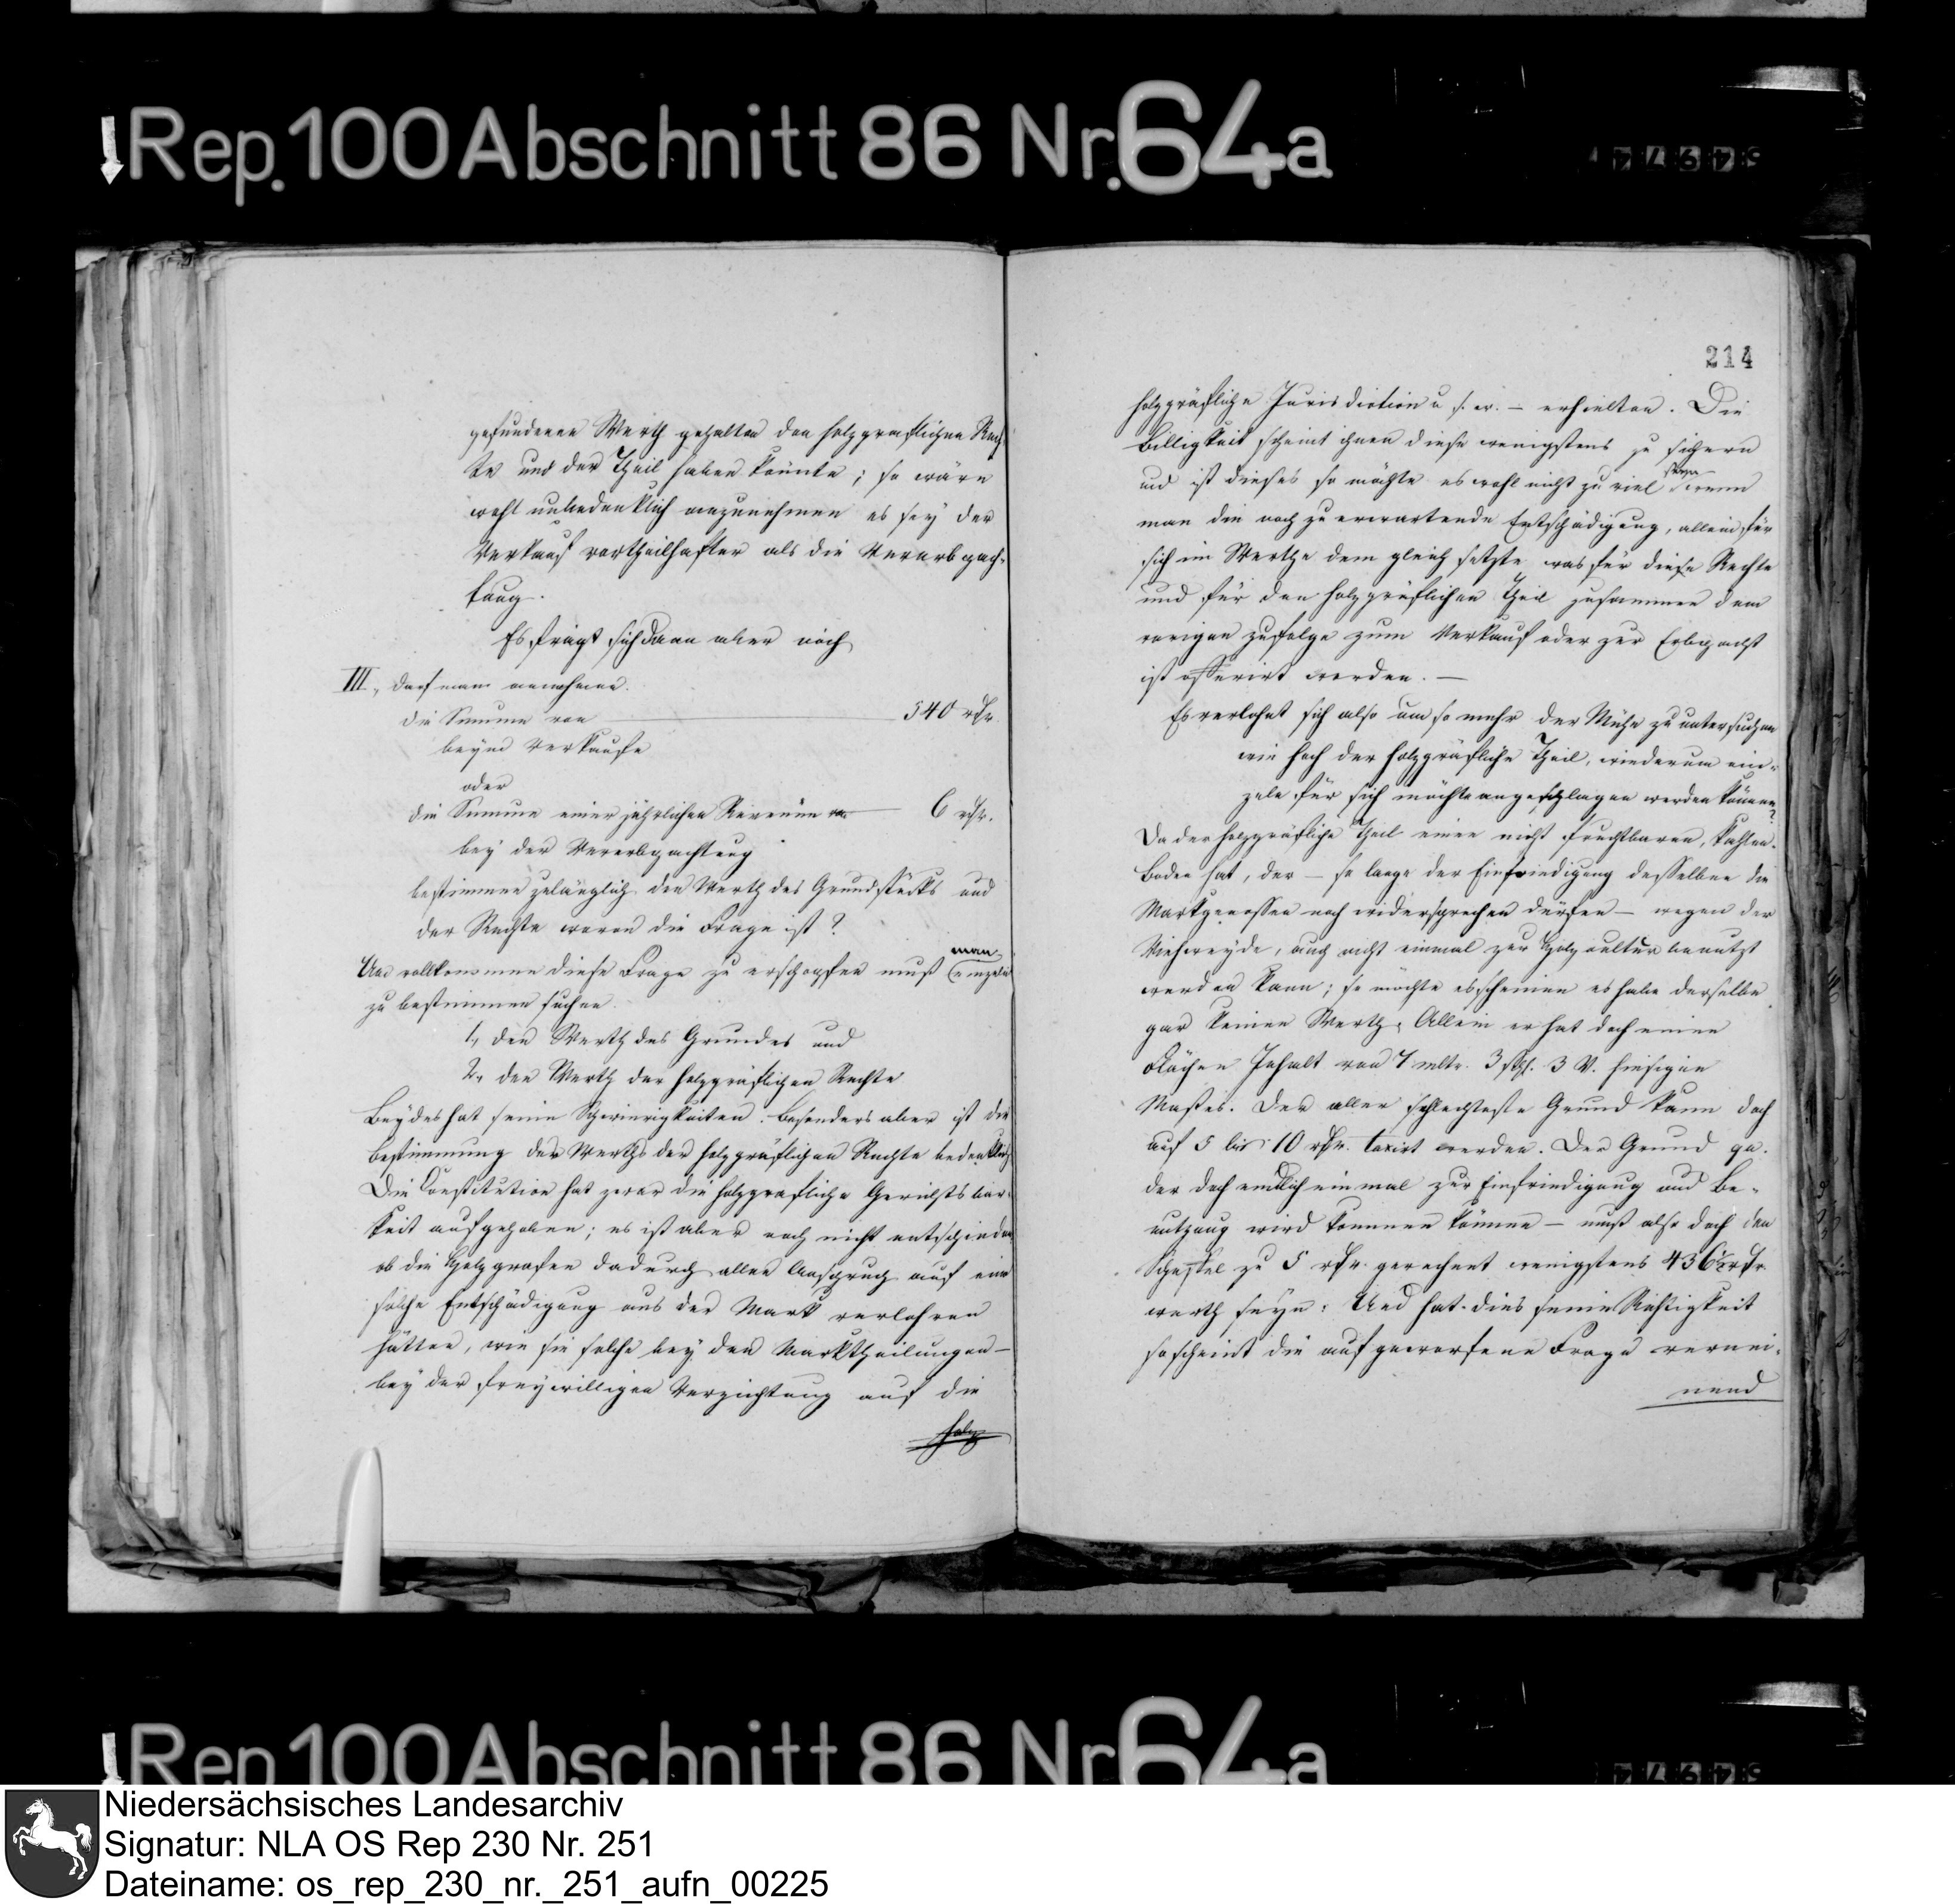 Rep. 100 Abschnitt 86 Nr. 64a
gefundenen Werth gehalten den holzgraflichen Rech
te und der Theil haben könnte; so wäre
wohl unbedenklich anzunehmen es sey der
Verkauf vortheilhafter als die Vererbpach-
tung.
Es frägt sich dann aber noch
III, darf man annehmen.
die Summe von 540 rthr.
beym Verkaufe
oder
die Summe einer jährlichen Revenüe von 6 rthr.
bey der Vererbpachtung
bestimmen zulänglich den Werth des Grundstücks und
der Rechte wovon die Frage ist?
Um vollkommen diese Frage zu erschöpfen muß man einzeln
zu bestimmen suchen
1, den Werth des Grundes und
2, den Werth der holzgräflichen Rechte
Beydes hat seine Schwierigkeiten. Besonders aber ist die
Bestimmung des Werths der holzgräflichen Rechte bedenklich
Die Constitution hat zwar die holzgrafliche Gerichtsbar-
keit aufgehoben; es ist aber noch nicht entschieden
ob die Holzgrafen dadurch allen Anspruch auf eine
solche Entschädigung aus der Mark verlohren
hätten, wie sie solche bey den Marktheilungen -
bey der freywilligen Verzichtung auf die
holz
214
holzgräfliche Jurisdiction u. s. w. - erhielten. Die
Billigkeit scheint ihnen diese wenigstens zu sichern
und ist dieses so möchte es wohl nicht zu viel seyn wenn
man die noch zu erwartende Entschädigung, allein für
sich im Werthe dem gleich setzte was für diese Rechte
und für den holzgräflichen Theil zusammen dem
vorigen zufolge zum Verkauf oder zur Erbpacht
ist offerirt worden. -
Es verlohnt sich also um so mehr der Mühe zu untersuchen
wie hoch der holzgräfliche Theil, wiederum ein-
zeln für sich möchte angeschlagen werden können?
Da der holzgräfliche Theil einen nicht fruchtbaren, kahlen
Boden hat, der - so lange der Einfriedigung desselben die
Markgenossen noch widersprechen dürfen - wegen der
Viehweyde, auch nicht einmal zur Holzcultur benutzt
werden kann; so möchte es scheinen es habe derselbe
gar keinen Werth. Allein er hat doch einen
Flächen Inhalt von 7 mltr. 3 schfl. 3 V. hiesigen
Maßes. Der aller schlechteste Grund kann doch
auf 5 bis 10 rthr. taxirt werden. Der Grund qu.
der doch endlich einmal zur Einfriedigung und Be-
nutzung wird kommen können - muß also doch den
Scheffel zu 5 rthr. gerechnet wenigstens 436½ rthr
werth seyn. Und hat dies seine Richtigkeit
so scheint die aufgeworfene Frage vernei-
nend
Rep. 100 Abschnitt 86 Nr. 64a
Niedersächsisches Landesarchiv
Signatur: NLA OS Rep 230 Nr. 251
Dateiname: os_rep_230_nr._251_aufn_00225